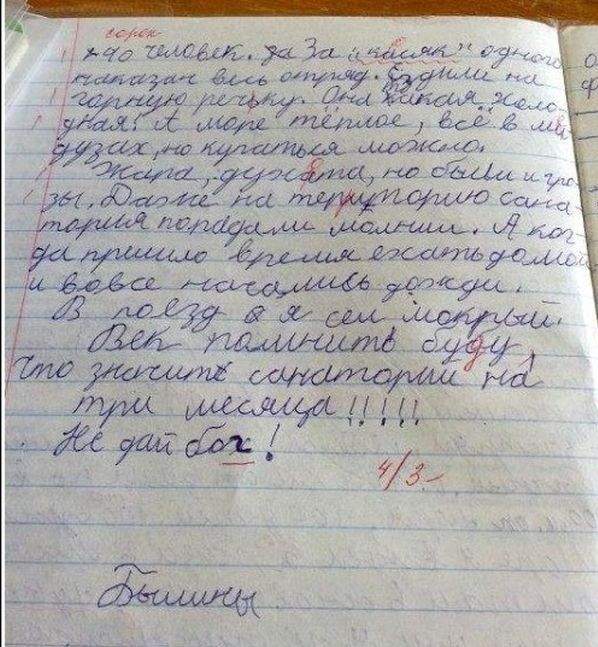 сорок
40 человек. За За "касяк" одного
наказан весь отряд. Ездили на
горную речьку. Она такая холо-
дная! А море тёплое, всё в ми
дузах, но купаться можно.
Жара, духата, но были и гро-
зы. Даже на територию сана-
тория попадали молнии. А ког-
да пришло время ехать домой
и вовсе начались дожди.
В поезд я сел мокрый.
Век помнить буду,
что значит санаторий на
три месяца!!!!!
Не дай бох!
4/3-
Былины